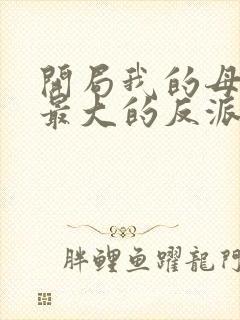 開局我的母
最大的反派
胖鯉鱼躍龍門